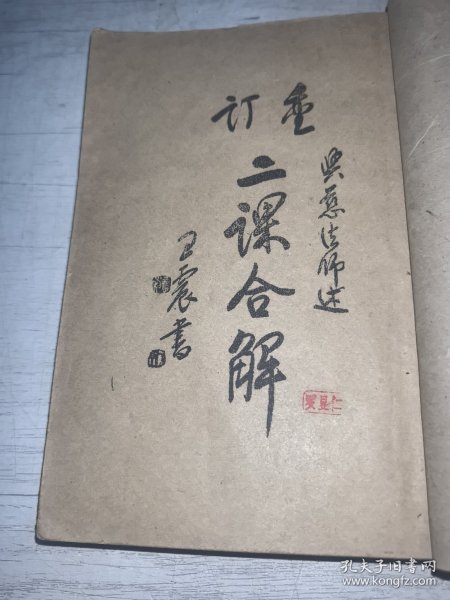 興慈法師述
重訂
二課合解
王震書
孔夫子旧书网
www.kongfz.com